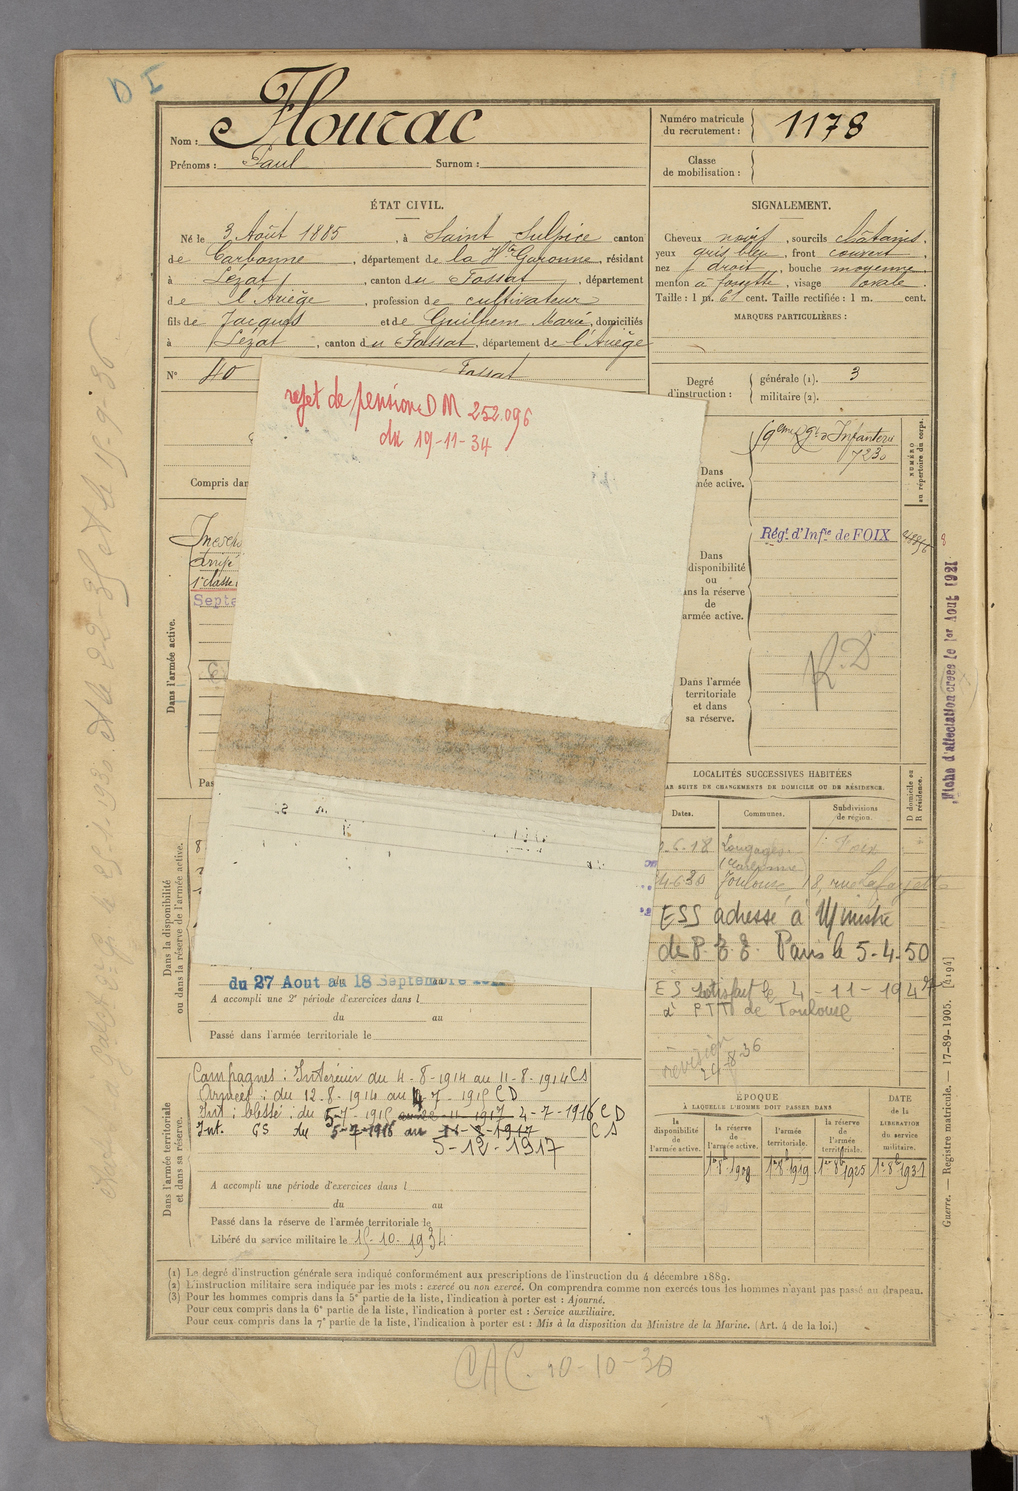 D I
Nom : Flourac
Prénoms : Paul Surnom :
Numéro matricule
du recrutement : 1178
Classe
de mobilisation :
ÉTAT CIVIL.
Né le 3 Août 1885, à Saint Sulpice canton
de Carbonne, département de la Hte Garonne, résidant
à Lézat, canton du Fossat, département
de l'Ariège, profession de cultivateur
fils de Jacques et de Guilhem Marie, domiciliés
à Lézat, canton du Fossat, département de l'Ariège
N° 40 Fossat
SIGNALEMENT.
Cheveux noirs, sourcils châtains.
yeux gris bleu, front couvert.
nez droit, bouche moyenne
menton à fossette, visage ovale.
Taille : 1 m. 61 cent. Taille rectifiée : 1 m. cent.
MARQUES PARTICULIÈRES :
Degré
d'instruction :
générale (1). 3
militaire (2).
rejet de pension DM 252.096
du 19-11-34
Compris dan
1e classe
Septe
Dans l'armée active.
Pas
Dans
née active.
59eme Rgt d'Infanterie
7230
NUMÉRO
au répertoire du corps.
Dans
disponibilité
ou
ans la réserve
de
armée active.
Régt d'Infie de FOIX
Dans l'armée
territoriale
et dans
sa réserve.
R.D
Fiche d'affectation créée le 1er Aout 1921
LOCALITÉS SUCCESSIVES HABITÉES
PAR SUITE DE CHANGEMENTS DE DOMICILE OU DE RÉSIDENCE.
Dates. Communes. Subdivisions
de région.
D domicile ou
R résidence.
-6-18 Longages Foix
(Carbonne)
4630 Toulouse 18, rue Lafayette
ESS adressé à Ministre
de P.T.T. Paris le 5-4-50
ES satisfait le 4-11-1947
à PTT de Toulouse
révision
29-8-36
Dans la disponibilité
ou dans la réserve de l'armée active.
du 27 Aout au 18 Septembre
A accompli une 2e période d'exercices dans l
du au
Passé dans l'armée territoriale le
Dans l'armée territoriale
et dans sa réserve.
Campagnes : Intérieur du 4-8-1914 au 11-8-1914 CS
Armées : du 12-8-1914 au 4-7-1915 CD
Int : blessé : du 5-7-1915 4-7-1916 CD
Int. CS du 5-7-1916 au 11-8-1917 CS
5-12-1917
A accompli une période d'exercices dans l
du au
Passé dans la réserve de l'armée territoriale le
Libéré du service militaire le 15-10-1934
ÉPOQUE
À LAQUELLE L'HOMME DOIT PASSER DANS
DATE
de la
LIBÉRATION
du service
militaire.
la
disponibilité
de
l'armée active.
la réserve
de
l'armée active.
l'armée
territoriale.
la réserve
de
l'armée
territoriale.
1er 8b 1908 1er 8b 1919 1er 8b 1925 1er 8b 1931
Guerre. — Registre matricule. — 17-89-1905. [4194]
(1) Le degré d'instruction générale sera indiqué conformément aux prescriptions de l'instruction du 4 décembre 1889.
(2) L'instruction militaire sera indiquée par les mots : exercé ou non exercé. On comprendra comme non exercés tous les hommes n'ayant pas passé au drapeau.
(3) Pour les hommes compris dans la 5e partie de la liste, l'indication à porter est : Ajourné.
Pour ceux compris dans la 6e partie de la liste, l'indication à porter est : Service auxiliaire.
Pour ceux compris dans la 7e partie de la liste, l'indication à porter est : Mis à la disposition du Ministre de la Marine. (Art. 4 de la loi.)
CAC. 10-10-30